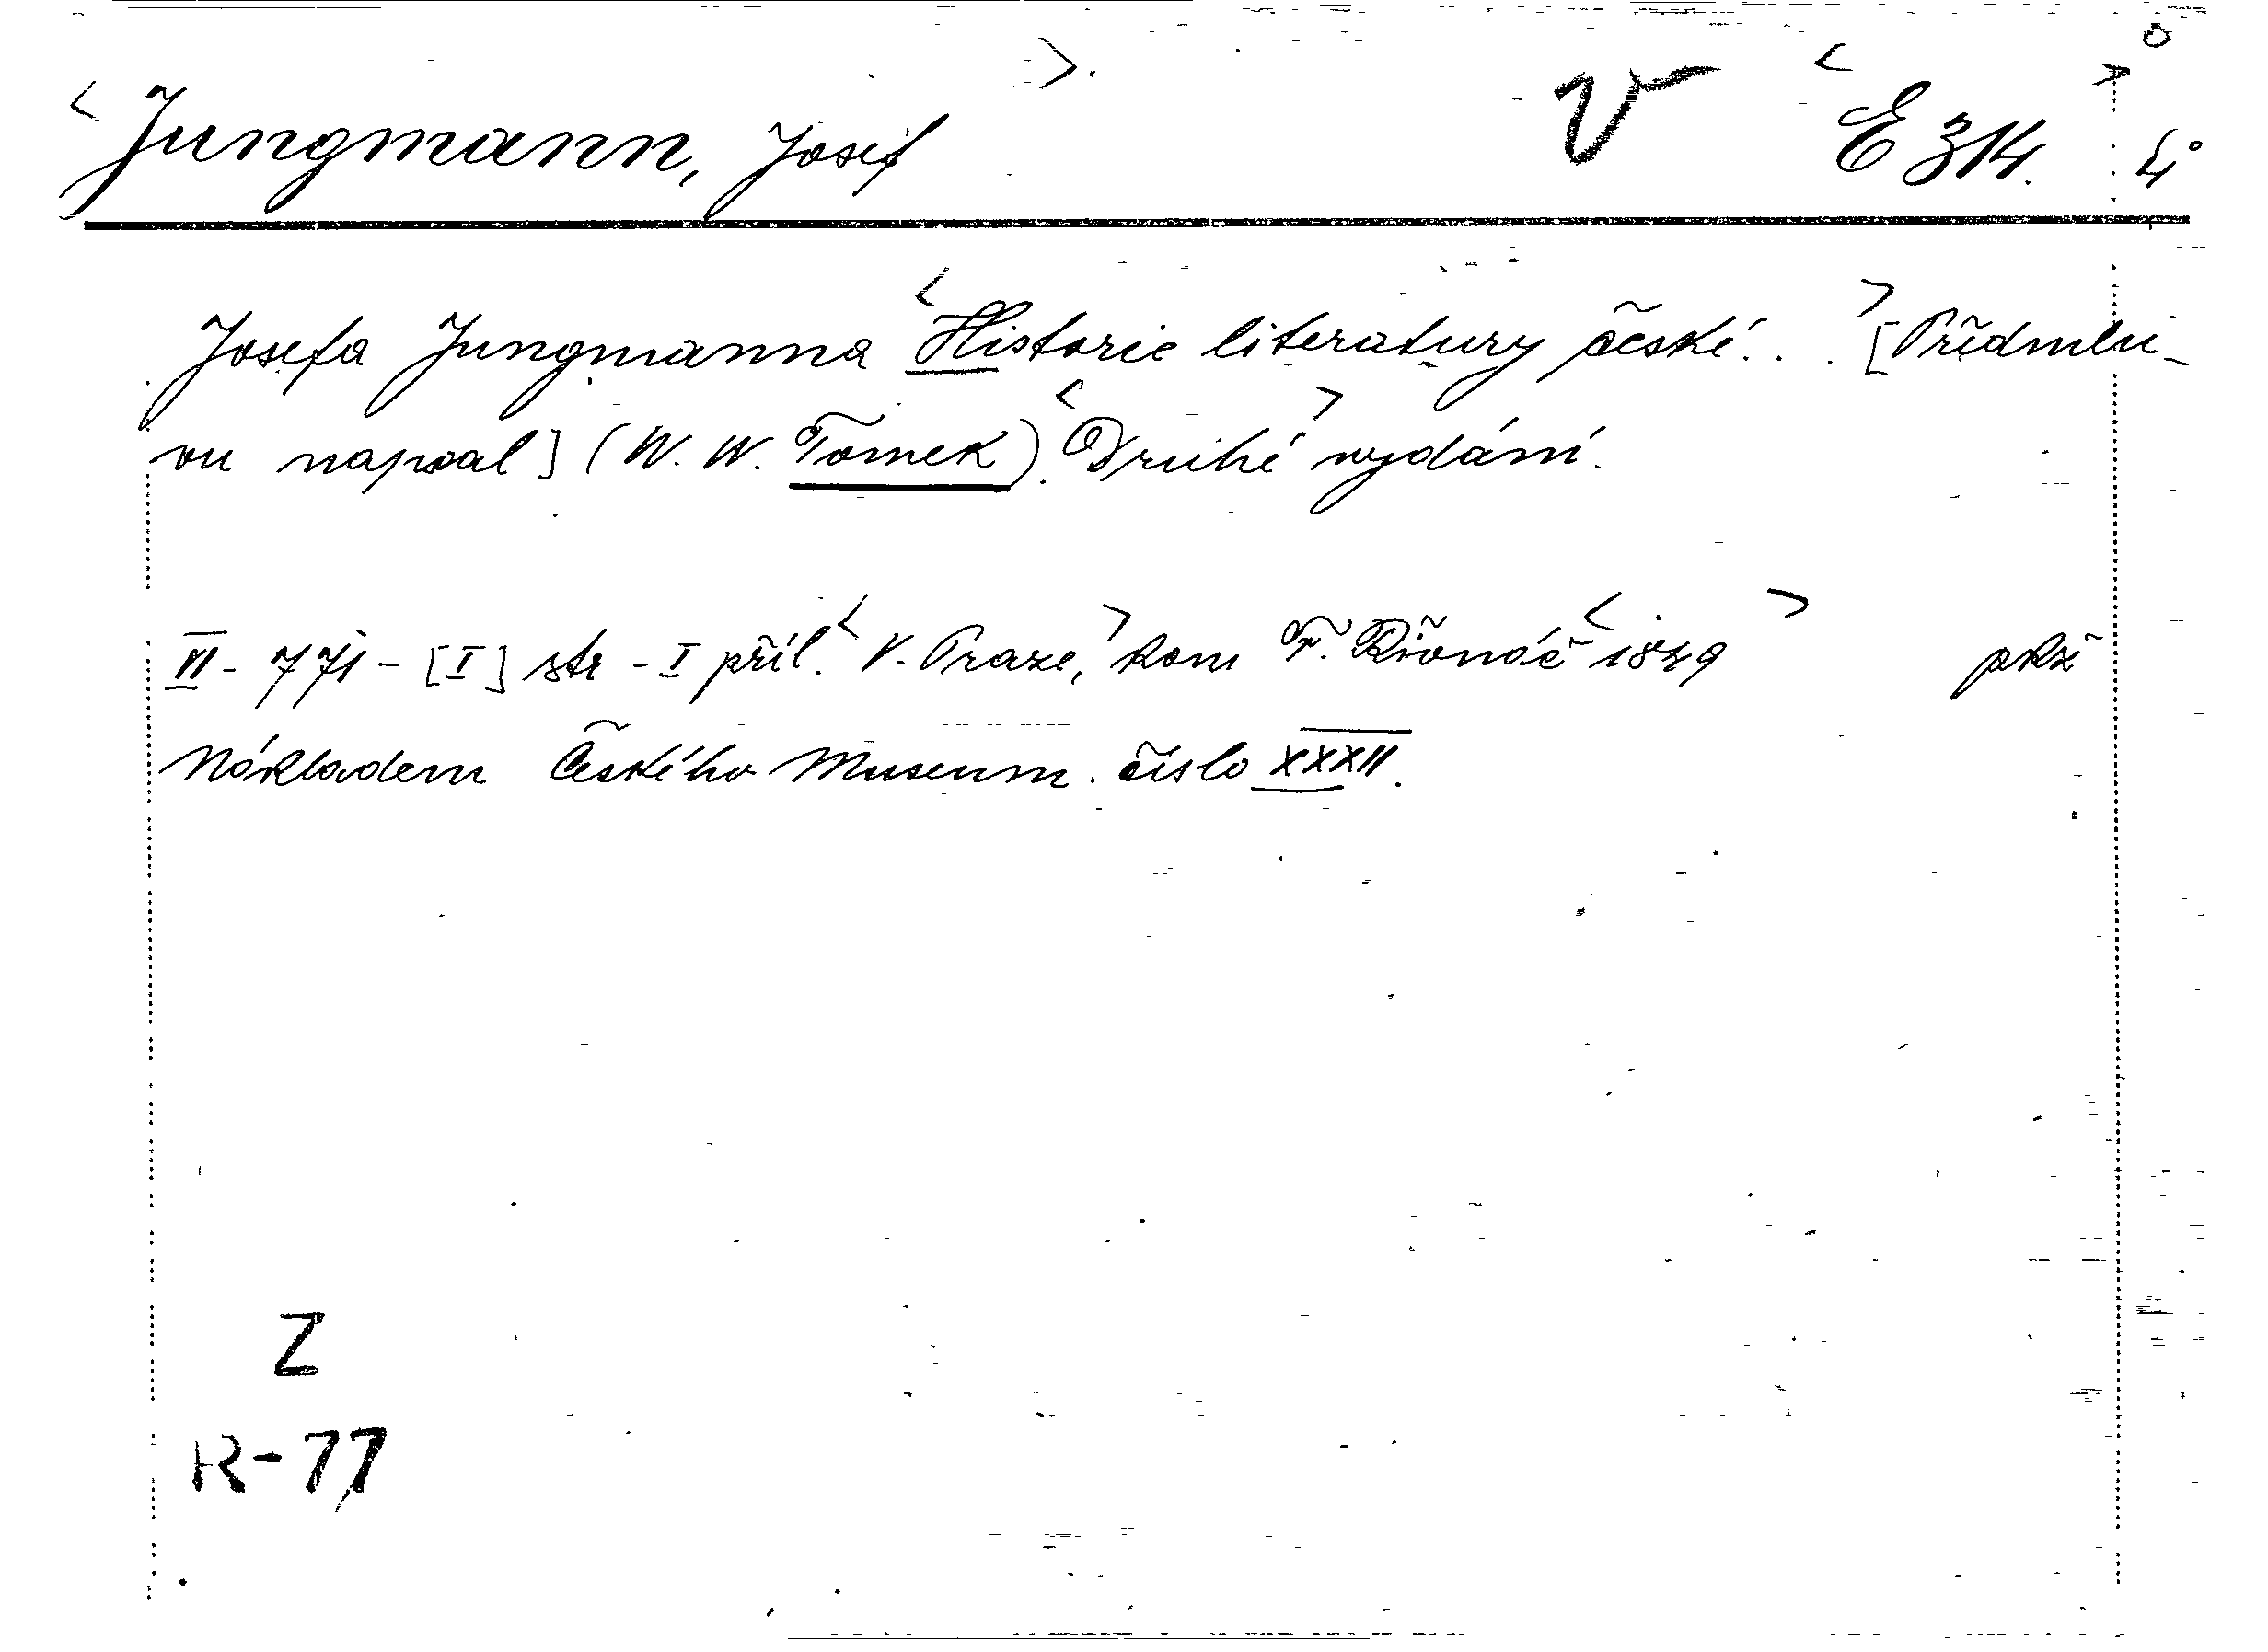 <Jungmann, Josef>. V <E 314.> 4°
Josefa Jungmanna <Historie literatury české...> [Předmlu-
vu napsal] (W. W. Tomek). <Druhé> vydání.
VI - 771 - [I] str - I příl. <V. Praze,> kom F. Řivnáč <1849> pkž
Nákladem Českého Museum. číslo XXXII.
Z
R-77